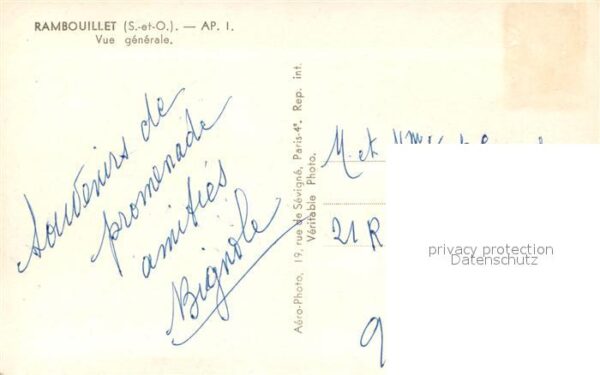 RAMBOUILLET (S.-et-O.). — AP. I.
Vue générale.
Souvenirs de
promenade
amitiés
Bignole
Aéro-Photo, 19, rue de Sévigné, Paris-4e. Rep. int.
Véritable Photo.
M et Mme
21 R
9
privacy protection
Datenschutz